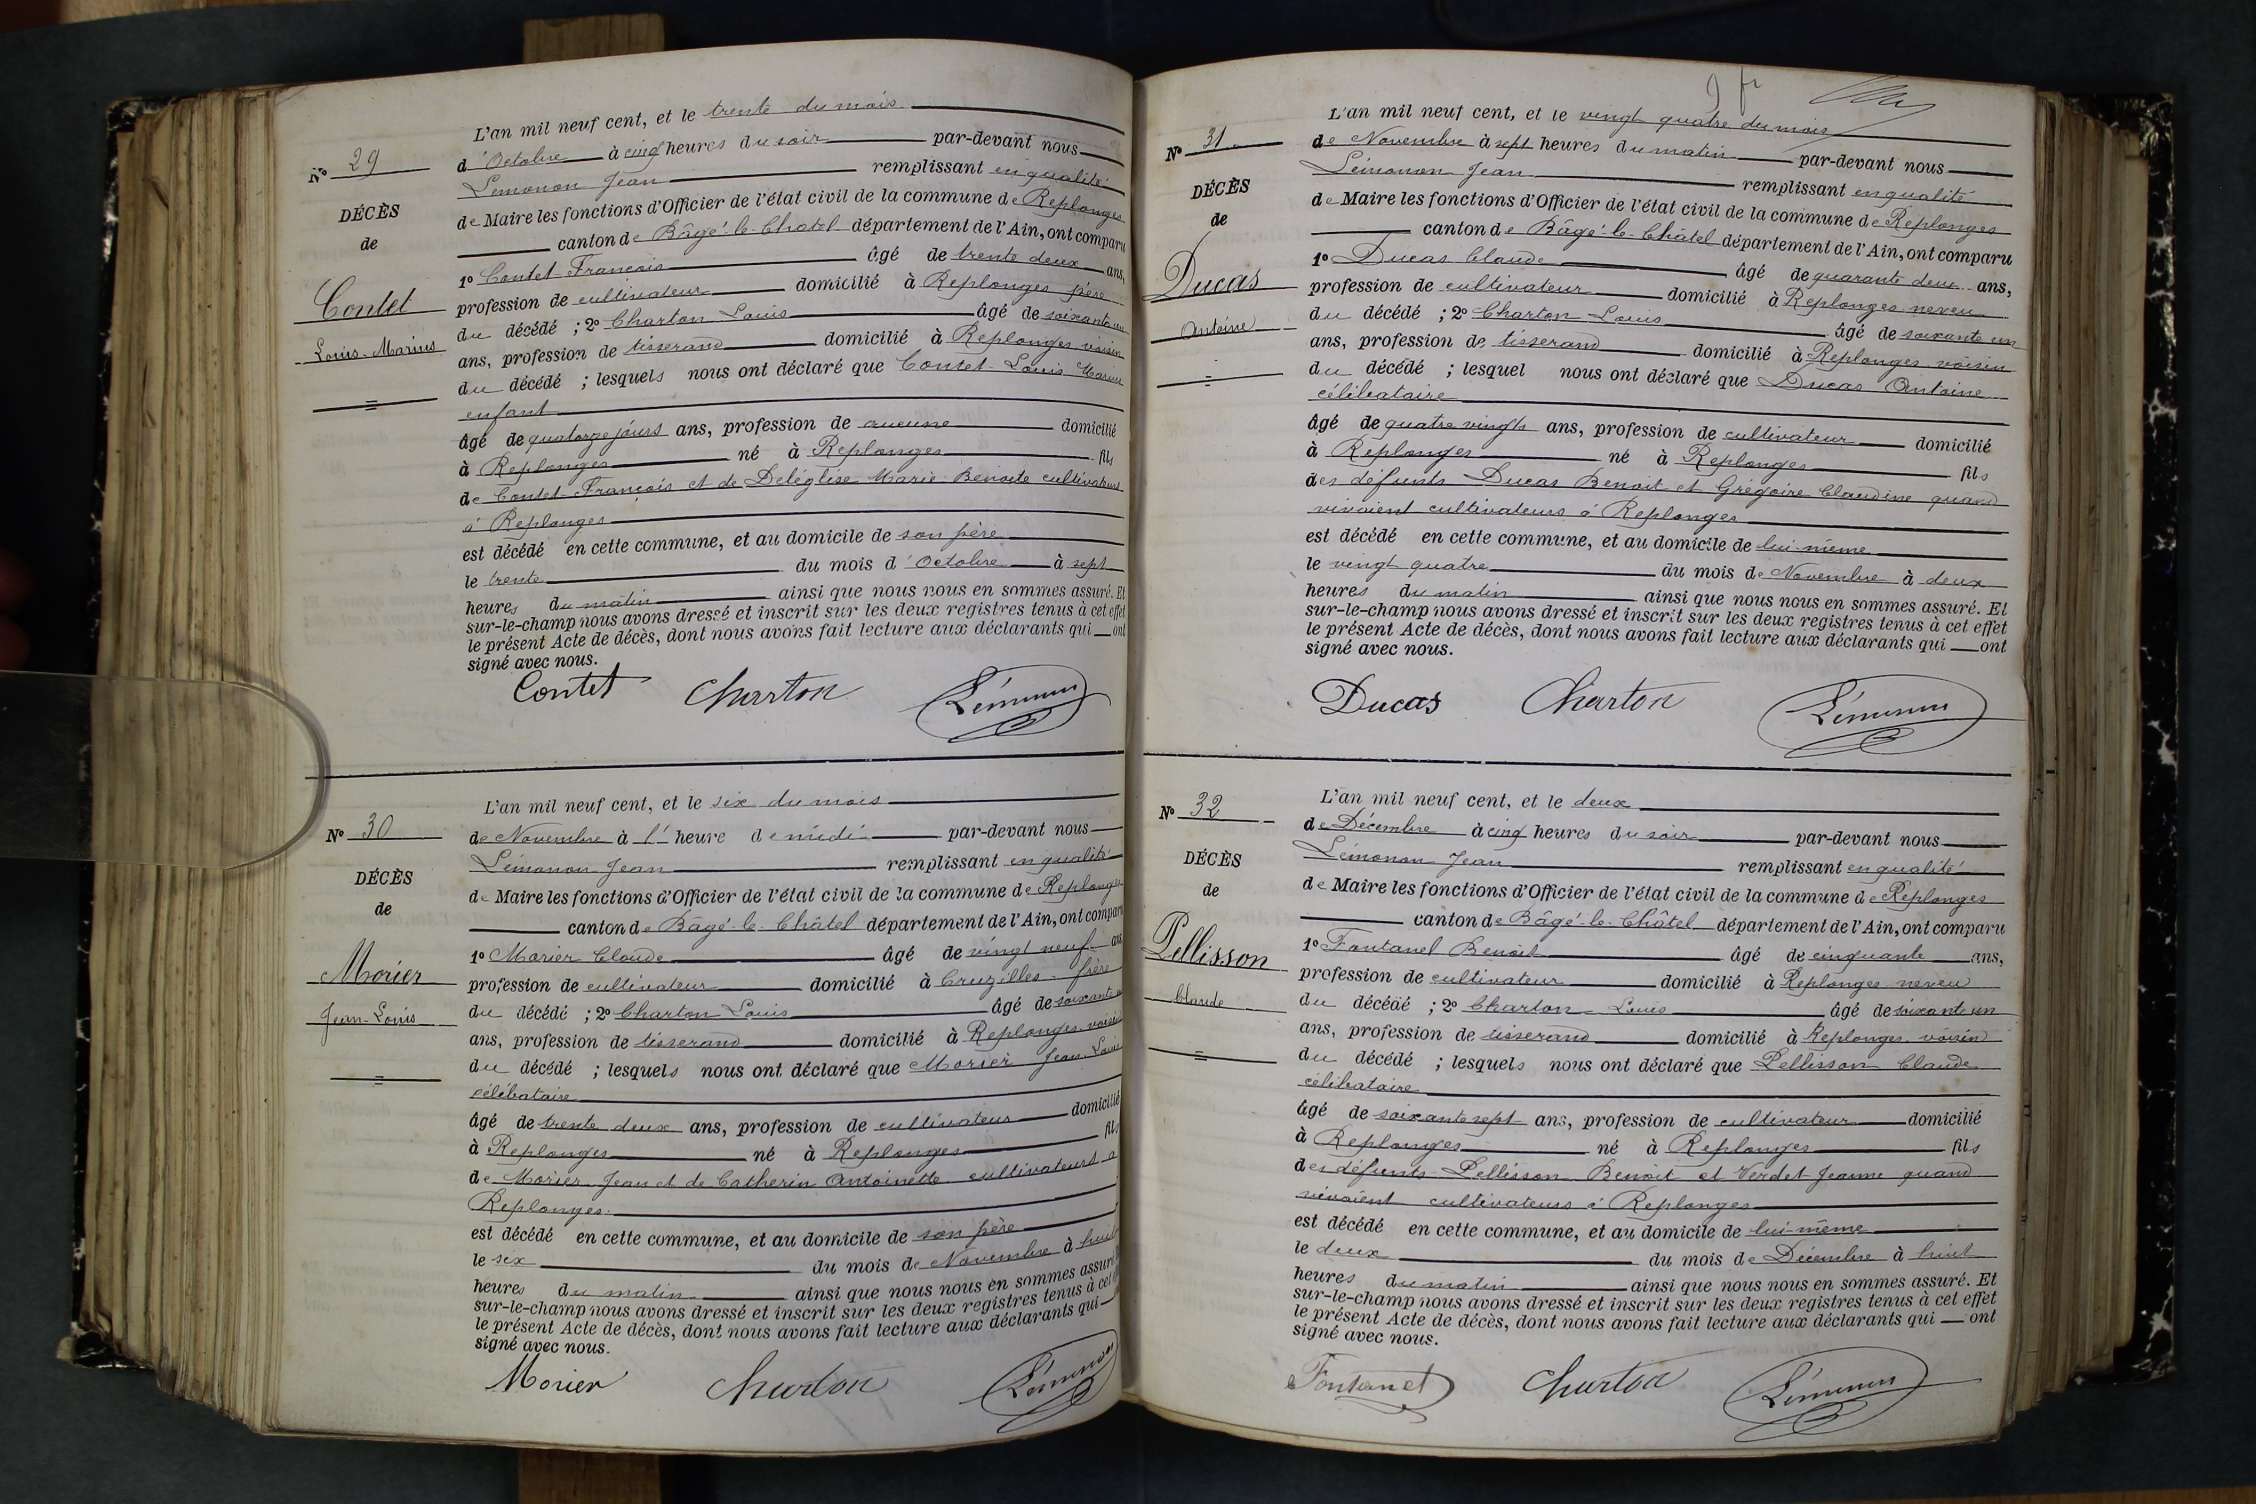 L'an mil neuf cent, et le trente du mois
Nº 29
d'Octobre à cinq heures du soir par-devant nous
Lémonon Jean remplissant en qualité
DÉCÈS
de Maire les fonctions d'Officier de l'état civil de la commune de Replonges
de
canton de Bâgé-le-Châtel département de l'Ain, ont comparu
1º Contet François âgé de trente deux ans,
Contet
profession de cultivateur domicilié à Replonges père
du décédé ; 2º Charton Louis âgé de soixante un
Louis-Marius
ans, profession de tisserand domicilié à Replonges voisin
du décédé ; lesquels nous ont déclaré que Contet Louis Marius
enfant
âgé de quatorze jours ans, profession de aucune domicilié
à Replonges né à Replonges fils
de Contet François et de Deléglise Marie Benoite cultivateurs
à Replonges
est décédé en cette commune, et au domicile de son père
le trente du mois d'Octobre à sept
heures du matin ainsi que nous nous en sommes assuré. Et
sur-le-champ nous avons dressé et inscrit sur les deux registres tenus à cet effet
le présent Acte de décès, dont nous avons fait lecture aux déclarants qui ont
signé avec nous.
Contet Charton Lémonon
L'an mil neuf cent, et le six du mois
Nº 30
de Novembre à l' heure de midi par-devant nous
Lémonon Jean remplissant en qualité
DÉCÈS
de Maire les fonctions d'Officier de l'état civil de la commune de Replonges
de
canton de Bâgé-le-Châtel département de l'Ain, ont comparu
1º Morier Claude âgé de vingt neuf ans
Morier
profession de cultivateur domicilié à Cruzilles frère
Jean-Louis
du décédé ; 2º Charton Louis âgé de soixante
ans, profession de tisserand domicilié à Replonges voisin
du décédé ; lesquels nous ont déclaré que Morier Jean Louis
célibataire
âgé de trente deux ans, profession de cultivateur domicilié
à Replonges né à Replonges fils
de Morier Jean et de Catherin Antoinette cultivateurs à
Replonges.
est décédé en cette commune, et au domicile de son père
le six du mois de Novembre à huit
heures du matin ainsi que nous nous en sommes assuré
sur-le-champ nous avons dressé et inscrit sur les deux registres tenus à cet
le présent Acte de décès, dont nous avons fait lecture aux déclarants qui
signé avec nous.
Morier Charton Lémonon
9 fr
L'an mil neuf cent, et le vingt quatre du mois
Nº 31
de Novembre à sept heures du matin par-devant nous
Lémonon Jean remplissant en qualité
DÉCÈS
de Maire les fonctions d'Officier de l'état civil de la commune de Replonges
de
canton de Bâgé-le-Châtel département de l'Ain, ont comparu
1º Ducas Claude âgé de quarante deux ans,
Ducas
profession de cultivateur domicilié à Replonges neveu
du décédé ; 2º Charton Louis âgé de soixante un
Antoine
ans, profession de tisserand domicilié à Replonges voisin
du décédé ; lesquel nous ont déclaré que Ducas Antoine
célibataire
âgé de quatre vingts ans, profession de cultivateur domicilié
à Replonges né à Replonges fils
des défunts Ducas Benoit et Grégoire Claudine quand
vivaient cultivateurs à Replonges
est décédé en cette commune, et au domicile de lui-même
le vingt quatre du mois de Novembre à deux
heures du matin ainsi que nous nous en sommes assuré. Et
sur-le-champ nous avons dressé et inscrit sur les deux registres tenus à cet effet
le présent Acte de décès, dont nous avons fait lecture aux déclarants qui ont
signé avec nous.
Ducas Charton Lémonon
L'an mil neuf cent, et le deux
Nº 32
de Décembre à cinq heures du soir par-devant nous
Lémonon Jean remplissant en qualité
DÉCÈS
de Maire les fonctions d'Officier de l'état civil de la commune de Replonges
de
canton de Bâgé-le-Châtel département de l'Ain, ont comparu
1º Fontanel Benoit âgé de cinquante ans,
Pellisson
profession de cultivateur domicilié à Replonges neveu
Claude
du décédé ; 2º Charton Louis âgé de soixante un
ans, profession de tisserand domicilié à Replonges voisin
du décédé ; lesquels nous ont déclaré que Pellisson Claude
célibataire
âgé de soixante sept ans, profession de cultivateur domicilié
à Replonges né à Replonges fils
des défunts Pellisson Benoit et Verdet Jeanne quand
vivaient cultivateurs à Replonges
est décédé en cette commune, et au domicile de lui-même
le deux du mois de Décembre à huit
heures du matin ainsi que nous nous en sommes assuré. Et
sur-le-champ nous avons dressé et inscrit sur les deux registres tenus à cet effet
le présent Acte de décès, dont nous avons fait lecture aux déclarants qui ont
signé avec nous.
Fontanel Charton Lémonon